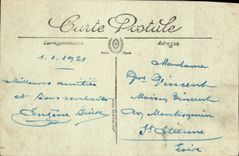 Carte Postale
Correspondance
Adresse
1-1-1921
Meilleures amitiés
et bons souhaits
Eugène
Madame
Vincent
Maison Vincent
St Etienne
Loire